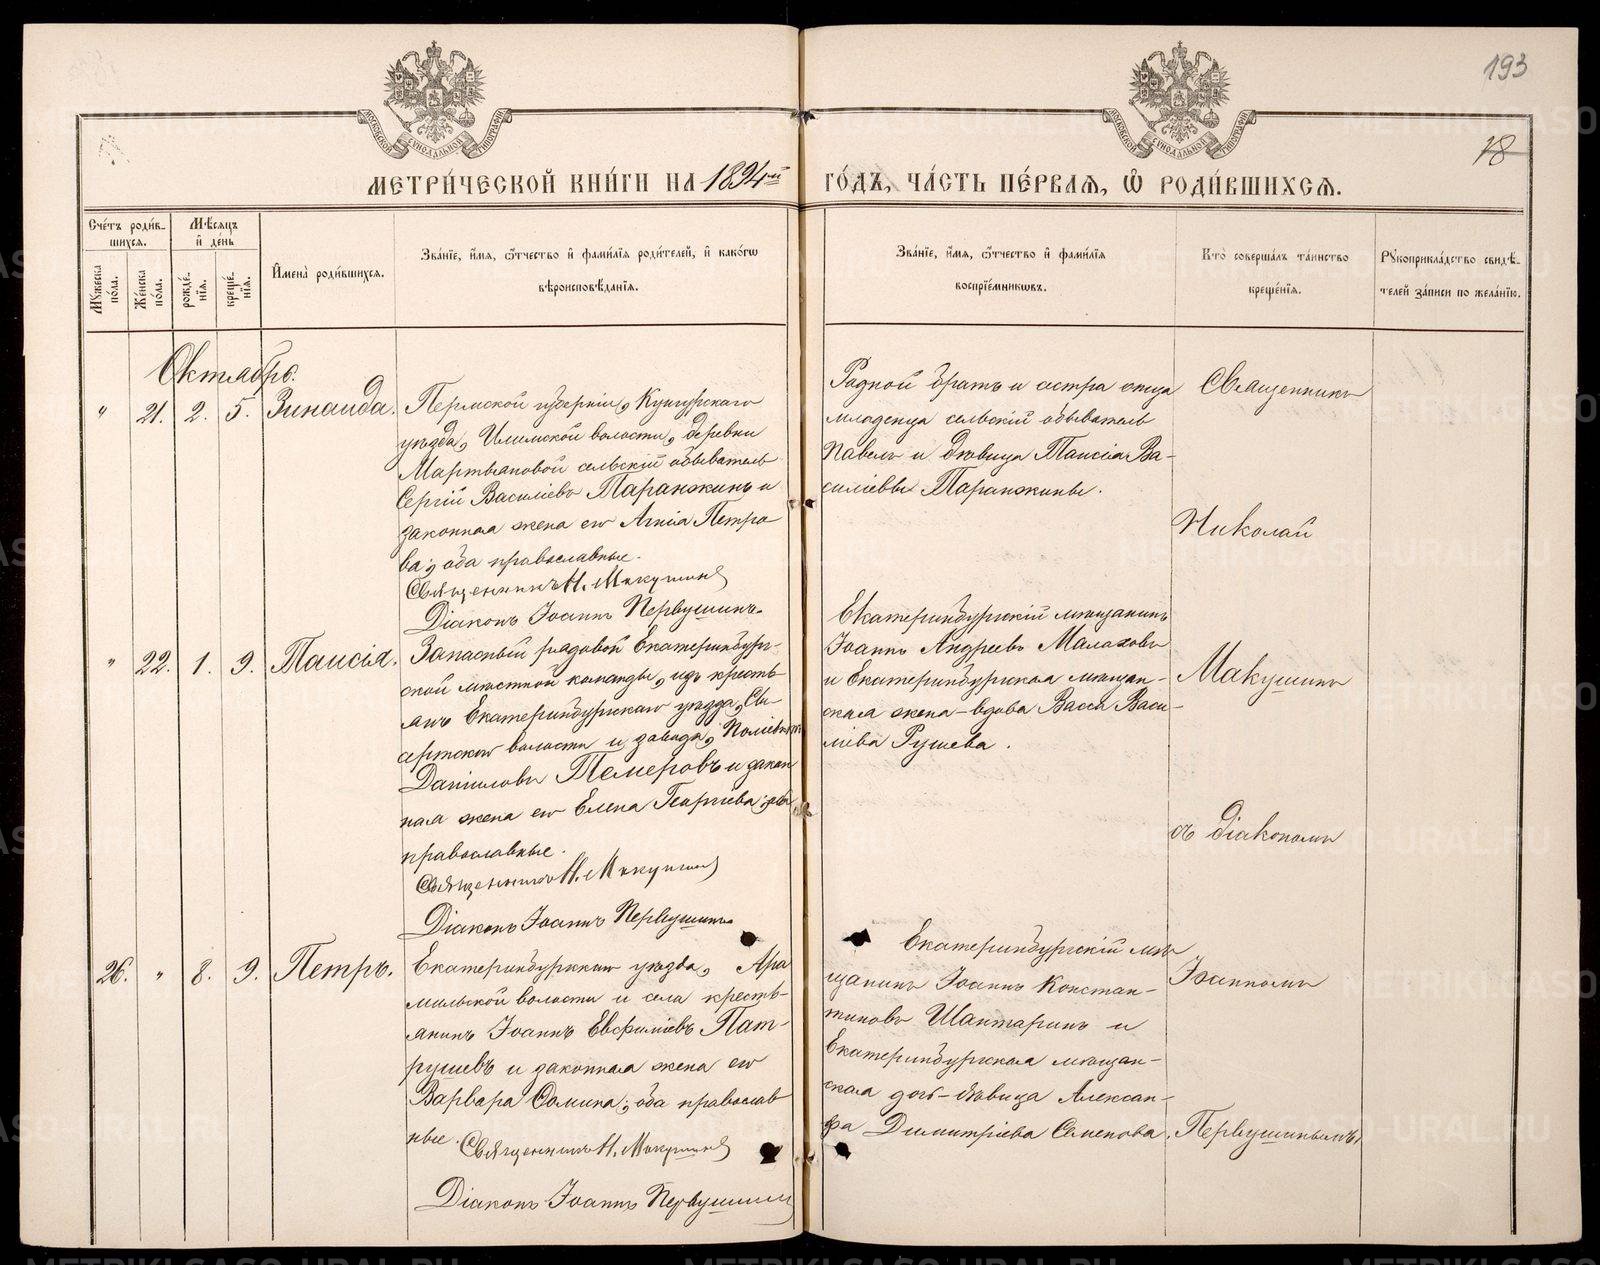 193
18
МЕТРИ́ЧЕСКОЙ КНИ́ГИ НА 1894й ГО́ДЪ, ЧА́СТЬ ПЕ́РВАЯ, Ѿ РОДИ́ВШИХСЯ.
Сче́тъ роди́вшихся.
Мꙋ́жеска по́ла.
Же́нска по́ла.
Мѣ́сяцъ и҆ де́нь
рожде́нїя.
креще́нїя.
И҆мена̀ роди́вшихся.
Зва́нїе, и҆́мя, ѻ҆́тчество и҆ фами́лїя роди́телей, и҆ како́гѡ
вѣроисповѣ́данїя.
Зва́нїе, и҆́мя, ѻ҆́тчество и҆ фами́лїя
воспрїе́мникѡвъ.
Кто̀ соверша́лъ та́инство
креще́нїя.
Рꙋкоприкла́дство свидѣ́-
телей за́писи по жела́нїю.
Октябрь.
" 21. 2. 5. Зинаида.
Пермской губернiи, Кунгурскаго
уѣзда, Илимской волости, деревни
Мартьяновой сельскiй обыватель
Сергiй Василiевъ Паранжинъ и
законная жена его Агнiя Петро
ва; оба православные.
Священникъ Н. Макушинъ
Дiаконъ Iоаннъ Первушинъ.
Родной братъ и сестра отца
младенца сельскiй обыватель
Павелъ и дѣвица Таисiя Ва-
силiевы Паранжины.
" 22. 1. 9. Таисiя.
Запасный рядовой Екатеринбург-
ской мѣстной команды, изъ кресть
янъ Екатеринбургскаго уѣзда, Сы-
сертской волости и завода,
Данiиловъ Темеровъ и закон
ная жена его Елена Георгiева; оба
православные.
Священникъ Н. Макушинъ
Дiаконъ Iоаннъ Первушинъ
Екатеринбургскiй мѣщанинъ
Iоаннъ Андреевъ Малаховъ
и Екатеринбургская мѣщан-
ская жена-вдова Васса Васи-
лiева Рушева.
26. " 8. 9. Петръ.
Екатеринбургскаго уѣзда, Ара
мильской волости и села кресть-
янинъ Iоаннъ Евфимiевъ Пат-
рушевъ и законная жена его
Варвара Ѳомина; оба православ
ные. Священникъ Н. Макушинъ
Дiаконъ Iоаннъ Первушинъ
Екатеринбургскiй мѣ
щанинъ Iоаннъ Констан-
тиновъ Шантаринъ и
Екатеринбургская мѣщан-
ская дочь-дѣвица Александ-
ра Димитрiева Семенова.
Священникъ
Николай
Макушинъ
съ Дiакономъ
Iоанномъ
Первушинымъ